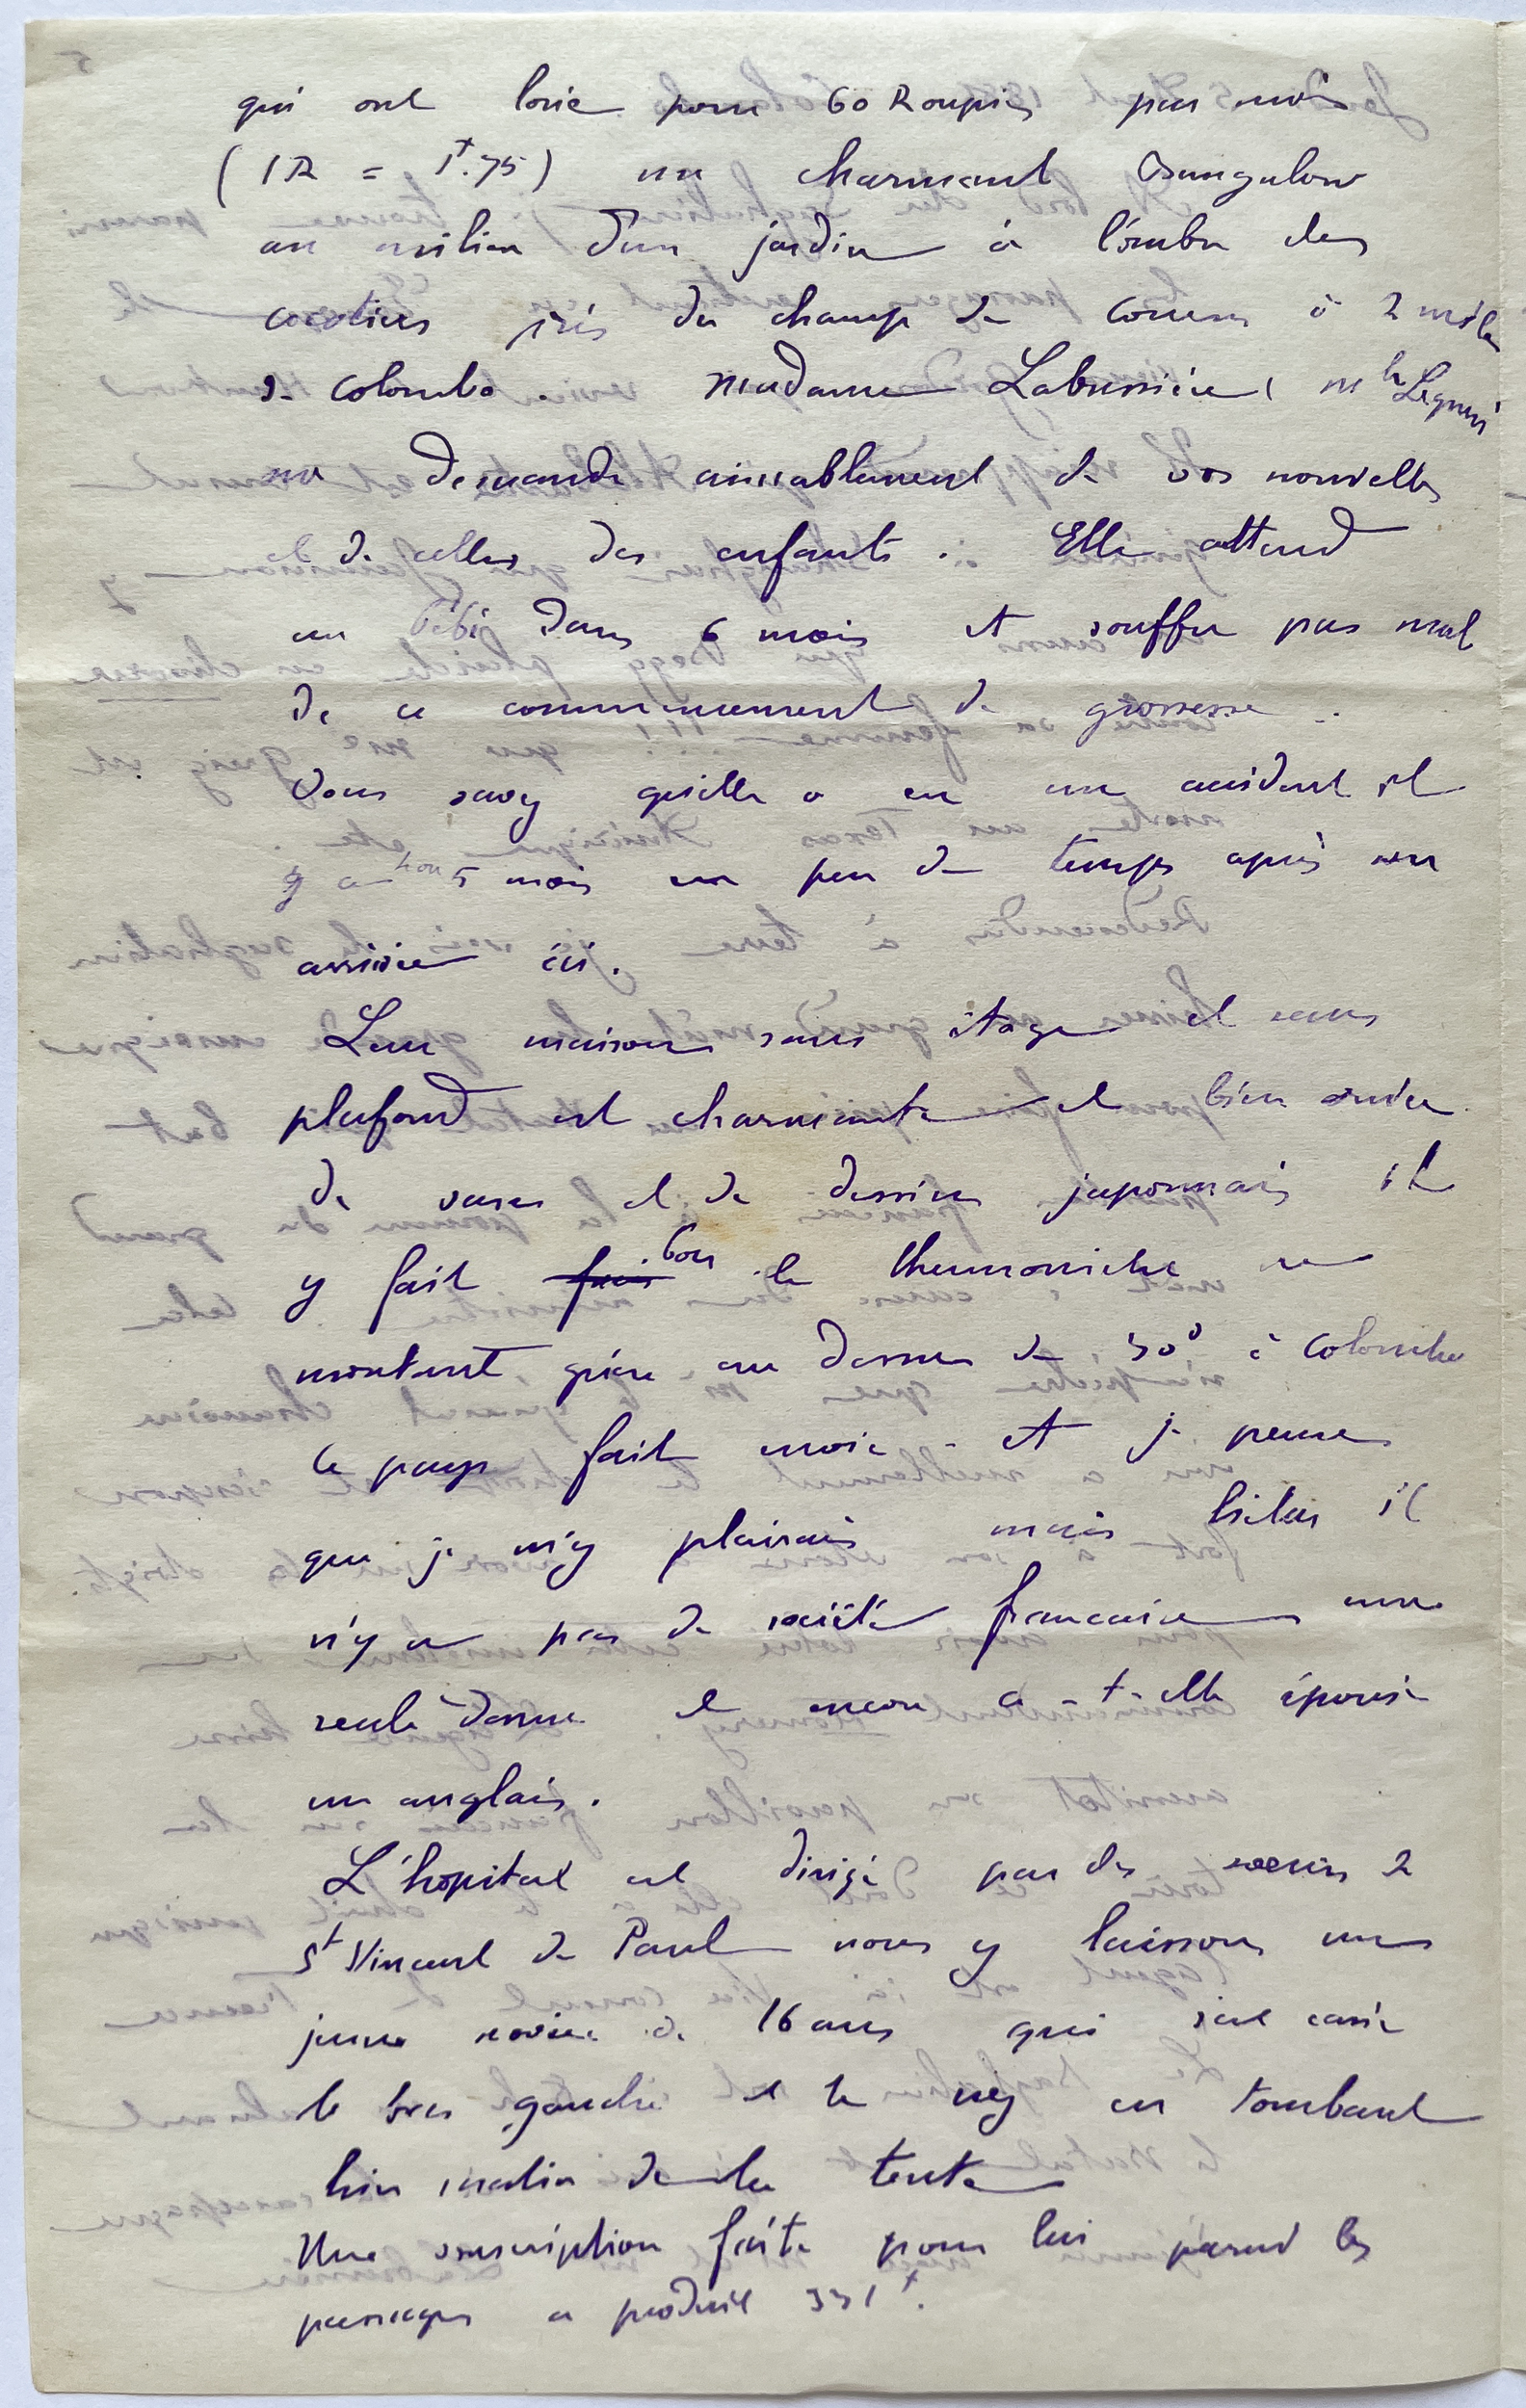 qui ont loué pour 60 Roupies par mois
(1R = 1f.75) un charmant Bungalow
au milieu d'un jardin à l'ombre des
cocotiers près du champ de courses à 2 miles
de Colombo. Madame Labussière
me demande aimablement de vos nouvelles
et de celles des enfants. Elle attend
un bébé dans 6 mois et souffre pas mal
de ce commencement de grossesse..
Vous savez qu'elle a eu un accident il
y a 5 mois un peu de temps après son
arrivée ici.
Leur maison sans étage et sans
plafond est charmante et bien ornée
de vases et de dessins japonnais il
y fait bon le thermomètre ne
montant guère au dessus de 30° à Colombo
Ce pays fait envie - et je pense
que je m'y plairais mais hélas il
n'y a pas de société francaise une
seule dame et encore a-t-elle épousé
un anglais.
L'hopital est dirigé par des soeurs de
St Vincent de Paul nous y laissons un
jeune novice de 16 ans qui s'est cassé
le bras gauche et le nez en tombant
hier matin de la tente
Une souscription faite pour lui parmi les
passagers a produit 331f.